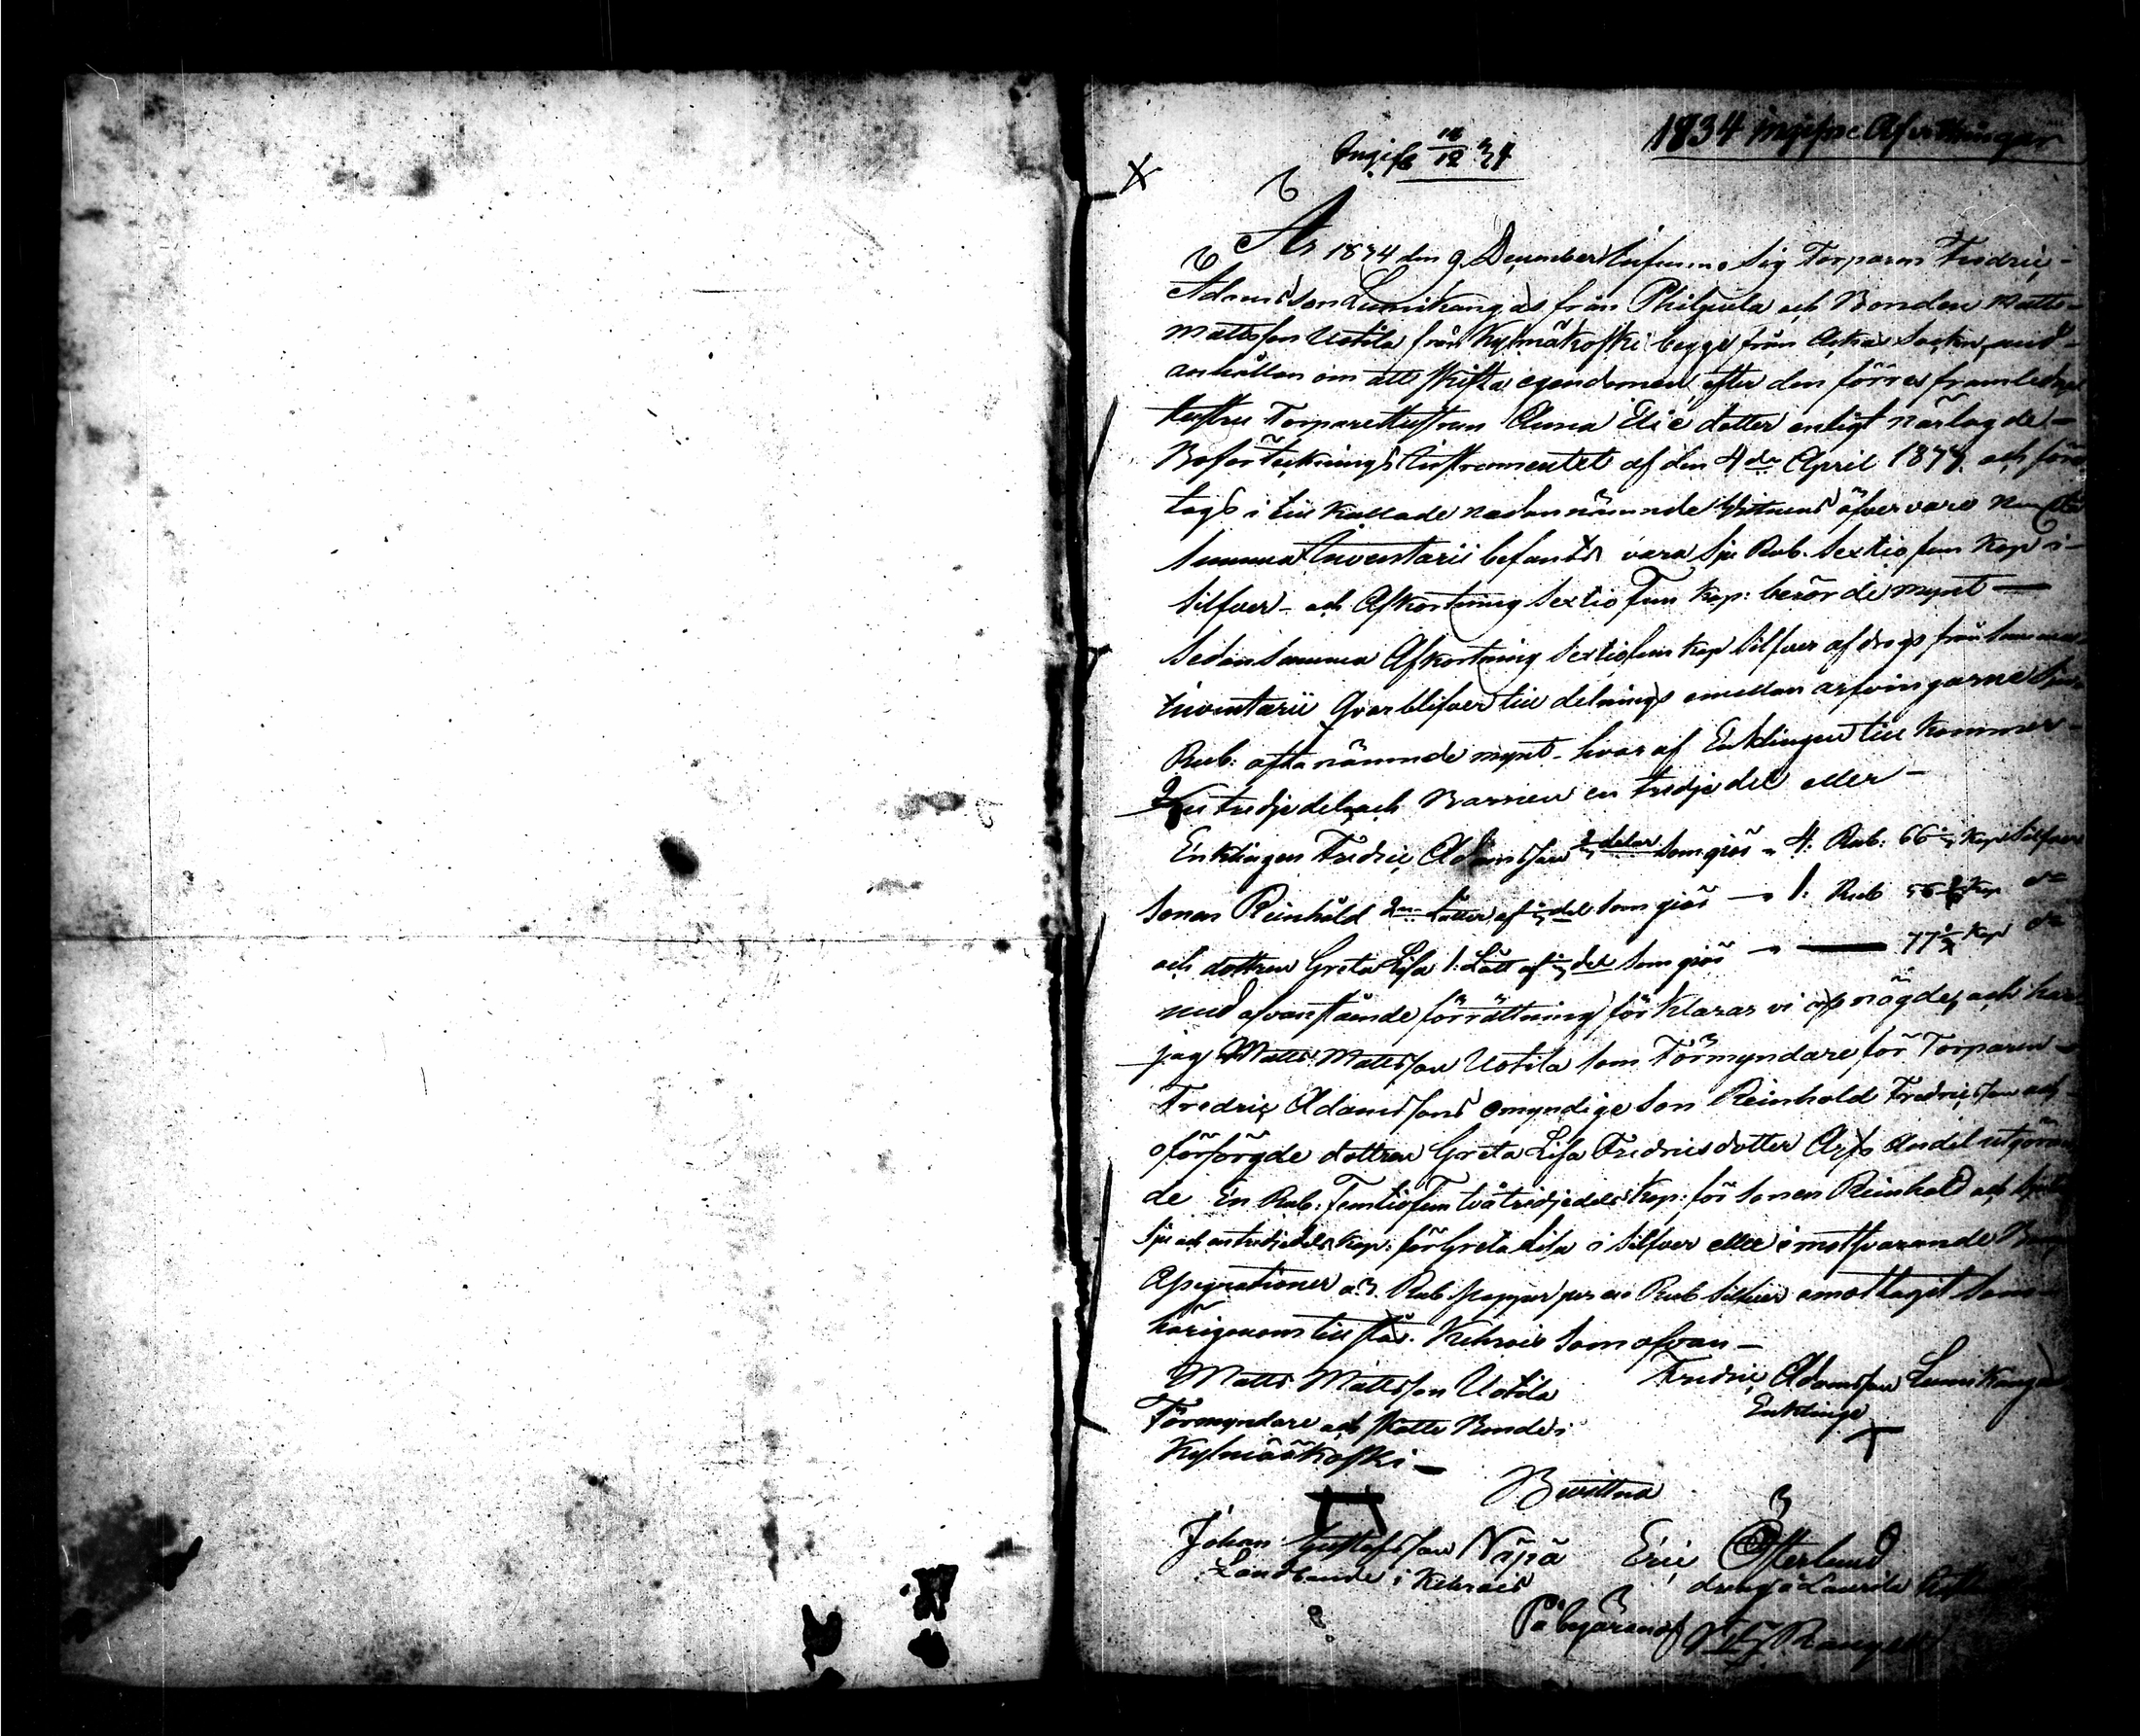 1834 ingifne Afvittringar
Ingifs 12 34
År 1834 den 9 December infunno sig Torparen Fredric
Adamsson Lumikangas från Philpula och Bonden Matts
Mattsson Uotila från Kylmäkoski begge från Ackas Socken, med
anhållan om att skifta egendomen efter den förres framledne
hustru Torparehustrun Anna Eric dotter enligt närlagde
Boförtecknings Instrumentet af den 4de April 1834 och före
togs i till kallade nedannämnde Vittnens öfvervaro
Summa Inventarii befants vara Sju Rub. Sextiofem Kop i
Silfver och Afkortning Sextiofem Kop: berörde mynt —
Sedan Summa Afkortning Sextiofem Kop Silfver afdrogs från Summa
Inventarii Qvarblifver till delnings emellan arfvingarne Sju
Rub: oftanämnde mynt hvaraf Enklingen till kommer
Två tredjedelar och Barnen en tredjedel eller —
Enklingen Fredric Adamsson 2/3 delar som giör 4. Rub: 66 2/3 Kop Silfver
Sonen Reinhold 2ne Lotter af 1/3 del som giör — 1: Rub 55 Kop do
och dottren Greta Lisa 1: Lott af 1/3 del som giör — 77 Kop do
med ofvanstående förrättning förklarar vi oss nögde, och har
jag Matts Mattsson Uotila som Förmyndare för Torparen
Fredric Adamssons omyndige Son Reinhold Fredricsson och
oförsörgde dottren Greta Lisa Fredricsdotter Arfs Andel utgöran
de En Rub: Femtiofem två tredjedels Kop: för Sonen Reinhold och Sjutio
Sju och en tredjedels Kop: för Greta Lisa i Silfver eller emotsvarande
Assignationer a 3. Rub papper per en Rub Silfver emottagit Som
härigenom till står. Kehrois som ofvan —
Matts Mattsson Uotila
Förmyndare och Skatte Bonde i
Kylmäkoski —
Fredric Adamsson Lumikangas
Enklinge
Bevittna
Johan Gustafsson Näpä
Landbonde i Kehrois
Eric Österlund
dräng å Laurila
På begäran af